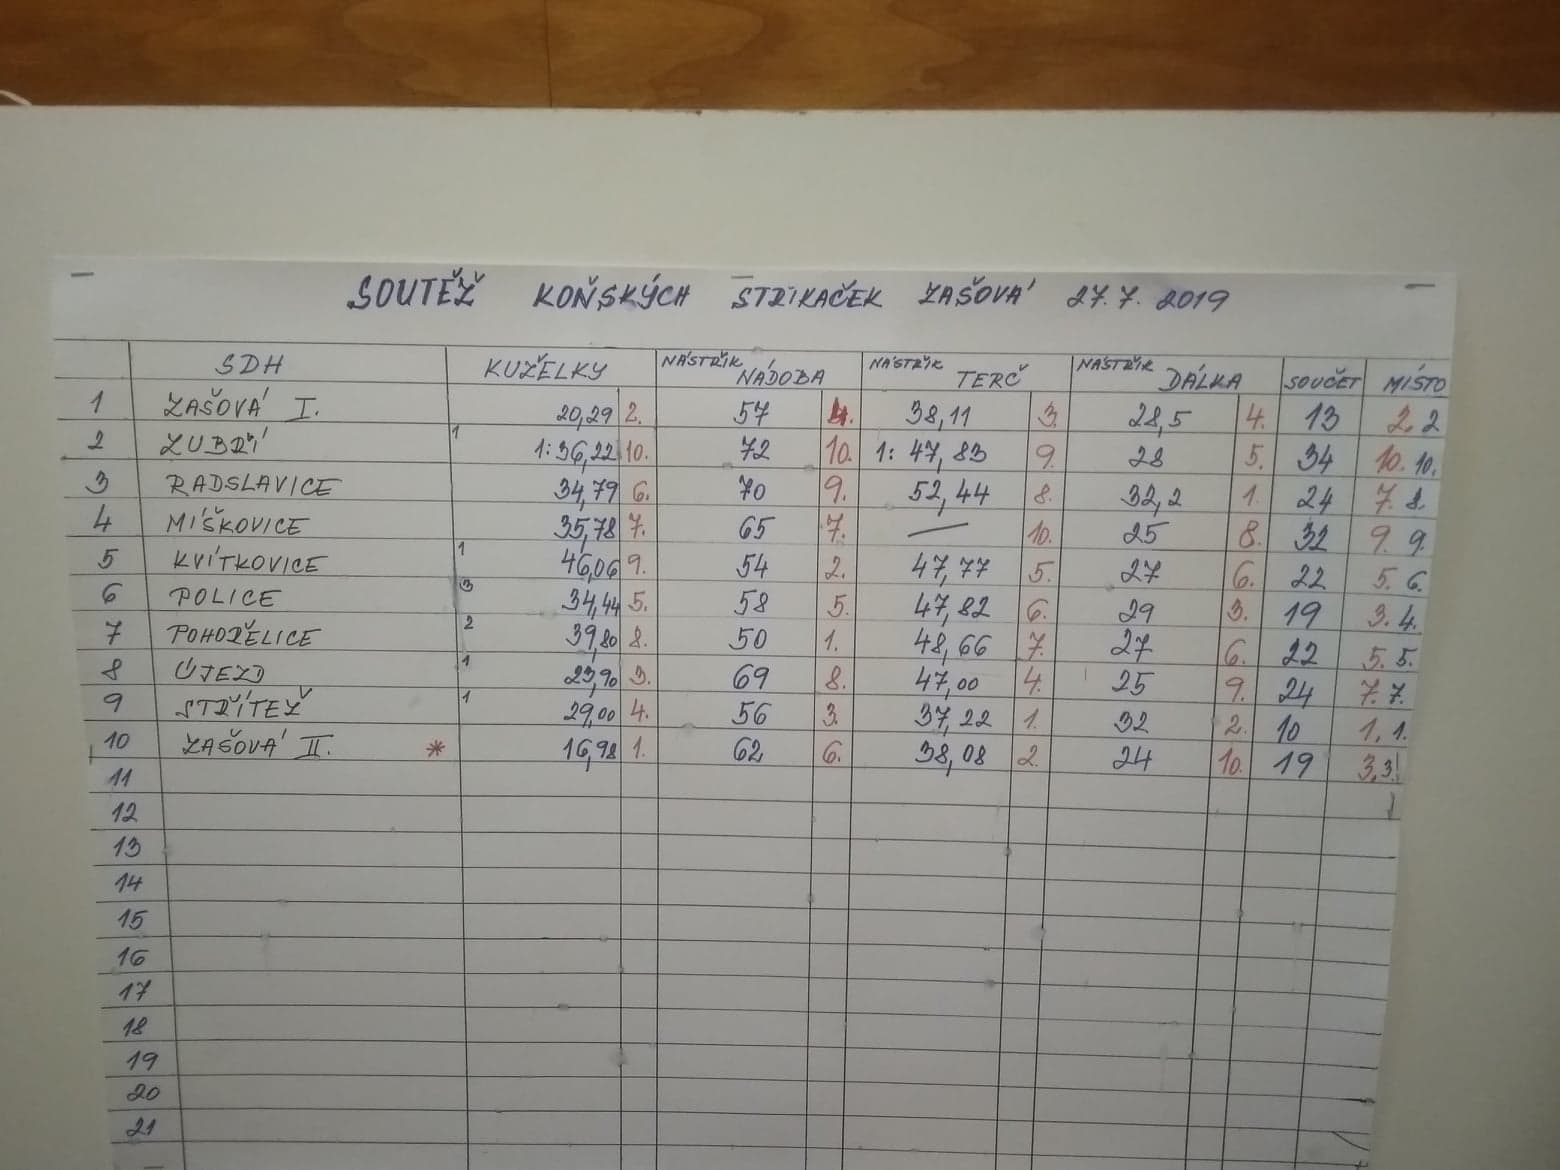 SOUTĚŽ KOŇSKÝCH STŘIKAČEK ZAŠOVÁ 27.7.2019
SDH KUŽELKY NÁSTŘIK NÁDOBA NÁSTŘIK TERČ NÁSTŘIK DÁLKA SOUČET MÍSTO
1 ZAŠOVÁ I. 20,29 2. 57 4. 38,11 3. 28,5 4. 13 2. 2
2 ZUBŘÍ 1 1:36,22 10. 72 10. 1:47,83 9. 28 5. 34 10. 10.
3 RADSLAVICE 34,79 6. 70 9. 52,44 8. 32,2 1. 24 7. 8.
4 MÍŠKOVICE 35,78 7. 65 7. — 10. 25 8. 32 9. 9.
5 KVÍTKOVICE 1 46,06 9. 54 2. 47,77 5. 27 6. 22 5. 6.
6 POLICE 3 34,44 5. 58 5. 47,82 6. 29 3. 19 3. 4.
7 POHOŘELICE 2 39,80 8. 50 1. 48,66 7. 27 6. 22 5. 5.
8 ÚJEZD 1 23,90 3. 69 8. 47,00 4. 25 9. 24 7. 7.
9 STŘÍTEŽ 1 29,00 4. 56 3. 37,22 1. 32 2. 10 1. 1.
10 ZAŠOVÁ II. * 16,98 1. 62 6. 38,08 2. 24 10. 19 3. 3.
11
12
13
14
15
16
17
18
19
20
21